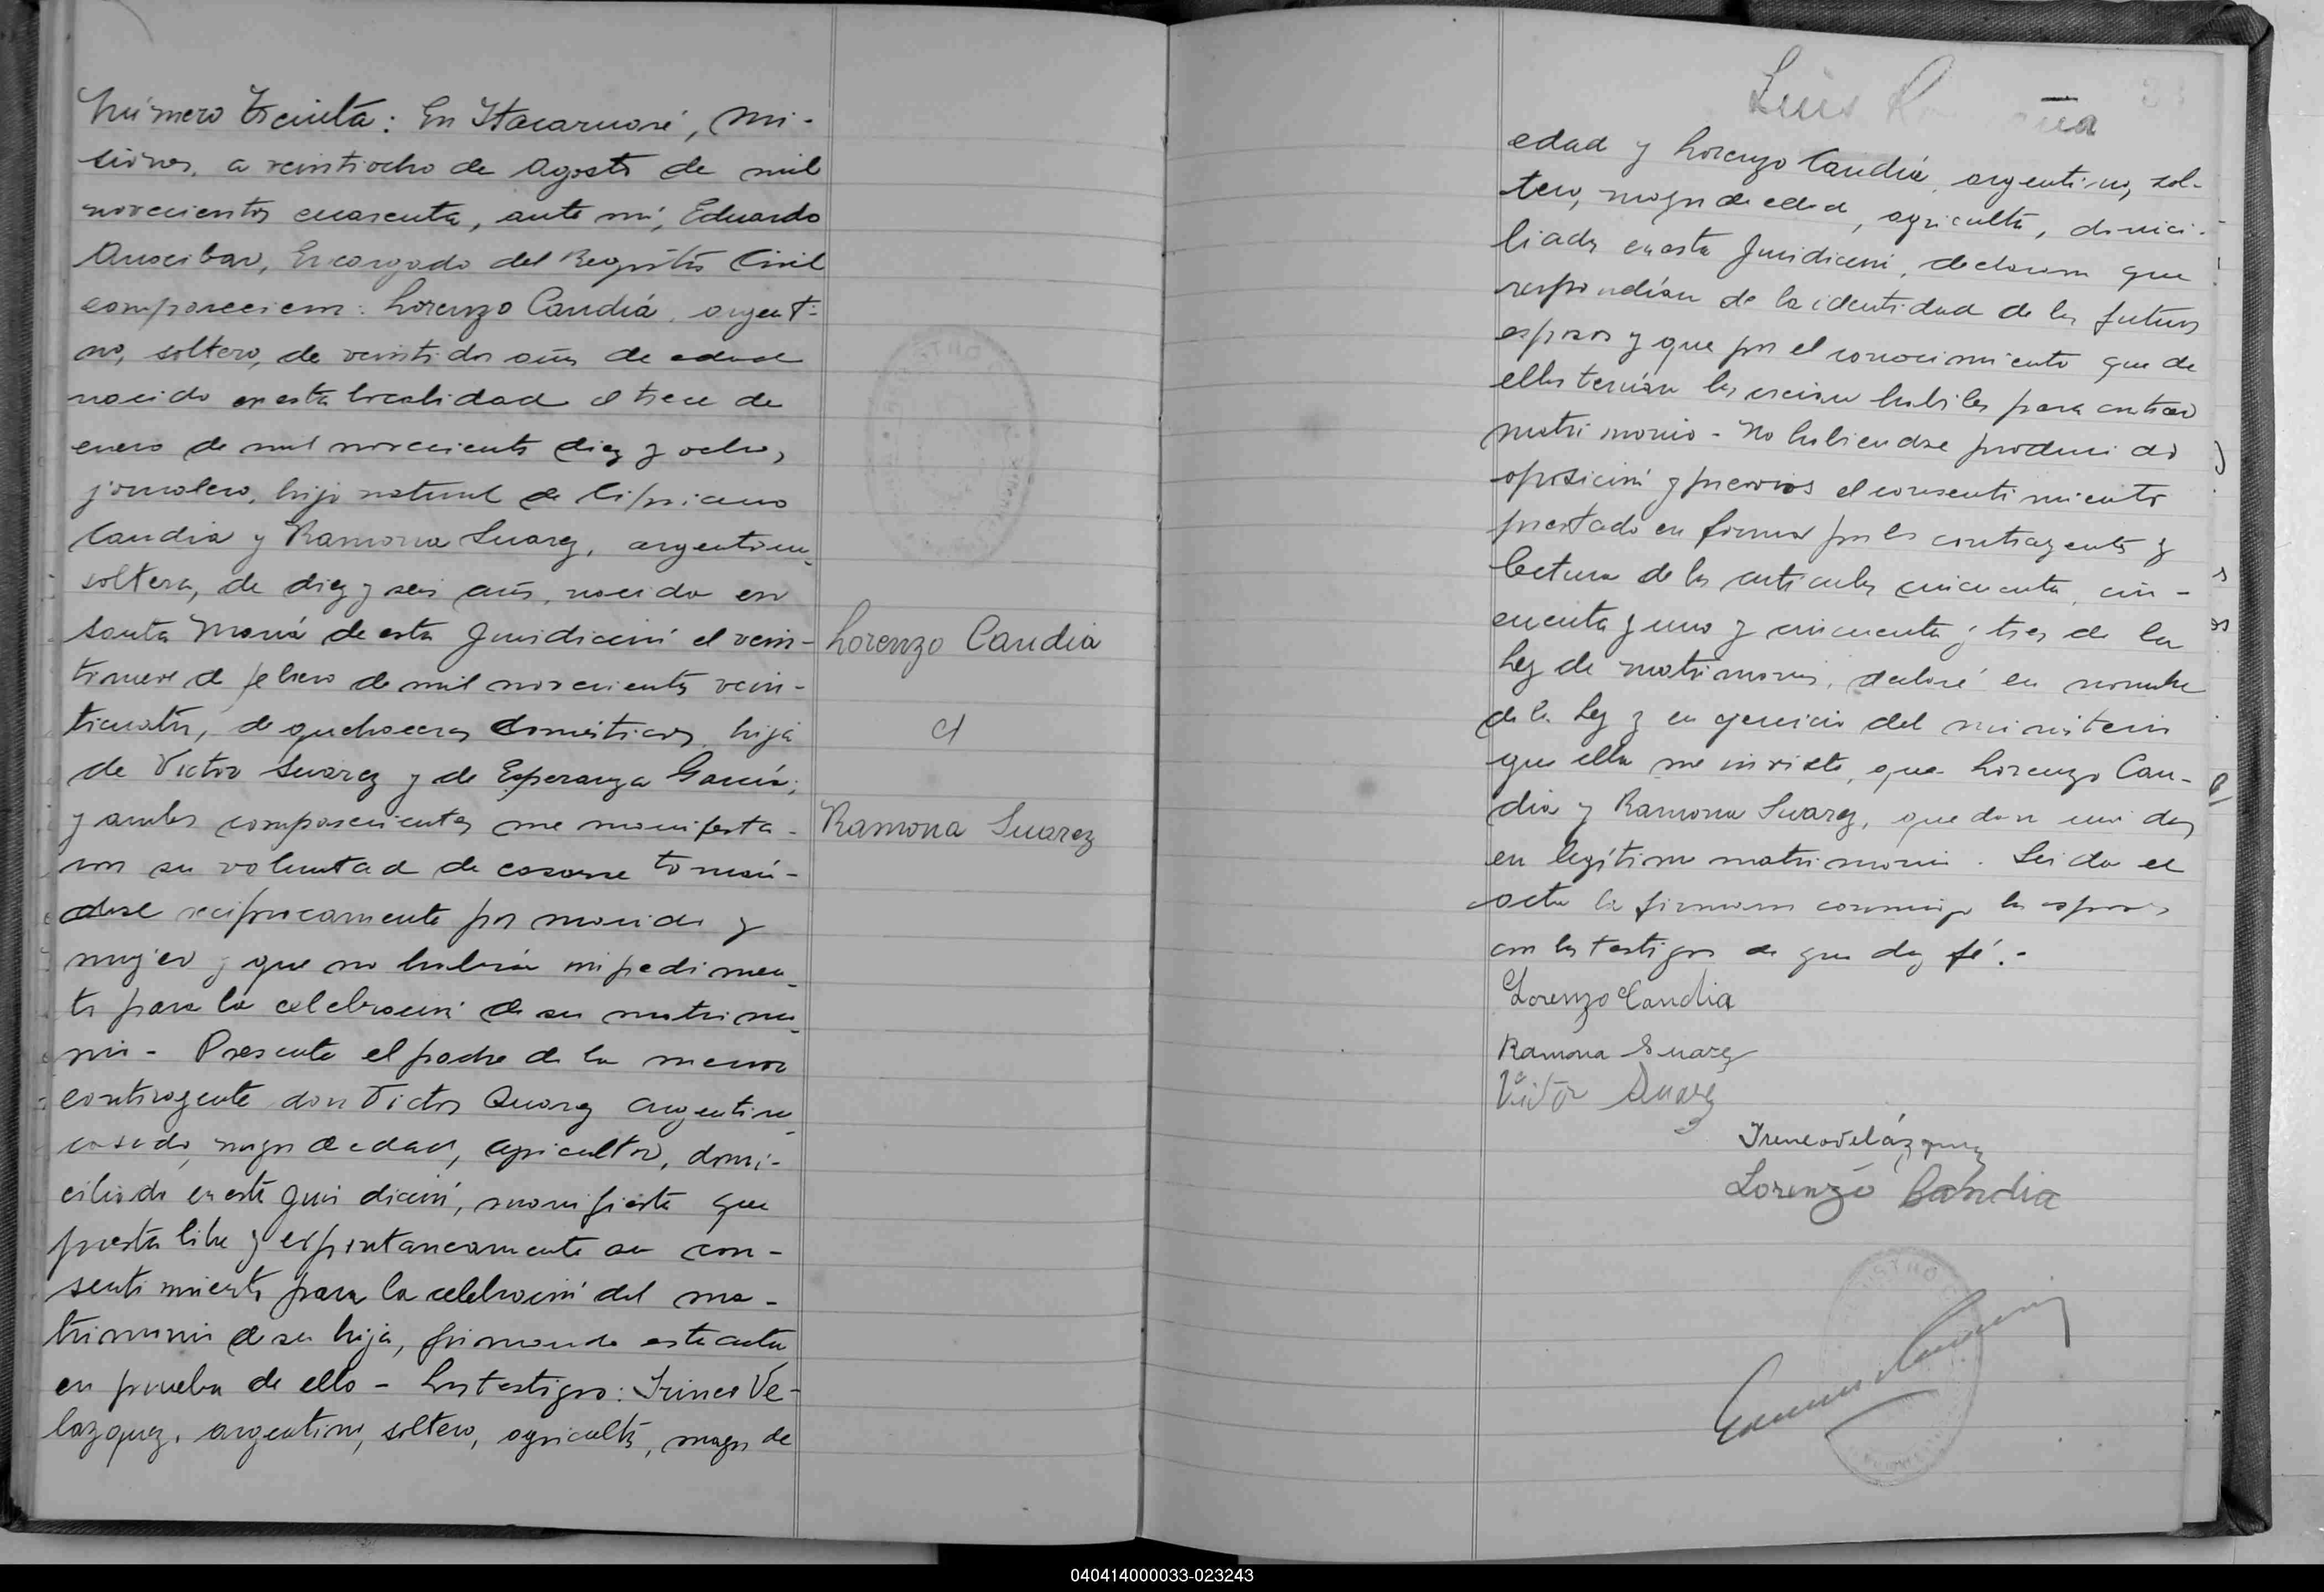 Número treinta: En Itacaruaré, Mi-
siones, a veintiocho de Agosto de mil
novecientos cuarenta, ante mí, Eduardo
Encargado del Registro Civil
comparecieron: Lorenzo Candiá, argenti-
no, soltero, de veintidos años de edad
nacido en esta localidad el trece de
enero de mil novecientos diez y ocho,
jornalero, hijo natural de Cipriano
Candia y Ramona Suarez, argentina,
soltera, de diez y seis años, nacida en
Santa María de esta Jurisdicción el vein-
tinueve de febrero de mil novecientos vein-
ticuatro, de quehaceres domésticos, hija
de Victor Suarez y de Esperanza García;
y ambos comparecientes me manifesta-
ron su voluntad de casarse tomán-
dose recíprocamente por marido y
mujer y que no habría impedimen-
to para la celebración de su matrimo-
nio - Presente el padre de la menor
contrayente don Victor Suarez argentino,
casado, mayor de edad, agricultor, domi-
ciliado en esta Jurisdicción, manifiesta que
presta libre y espontaneamente su con-
sentimiento para la celebración del ma-
trimonio de su hija, firmando este acta
en prueba de ello - Los testigos: Irineo Ve-
lazquez, argentino, soltero, agricultor, mayor de
Lorenzo Candia
Ramona Suarez
Luis
edad y Lorenzo Candiá, argentino, sol-
tero, mayor de edad, agricultor, domici-
liados en esta Jurisdicción, declararon que
respondían de la identidad de los futuros
esposos y que por el conocimiento que de
ellos tenían los creían hábiles para contraer
matrimonio - No habiendose producido
oposición y previos el consentimiento
prestado en forma por los contrayentes y
lectura de los artículos cincuenta, cin-
cuenta y uno y cincuenta y tres de la
Ley de matrimonio, declaré en nombre
de la Ley y en ejercicio del ministerio
que ella me inviste, que Lorenzo Can-
dia y Ramona Suarez, quedan unidos
en legítimo matrimonio. Leida el
acta la firmaron conmigo los esposos
con los testigos de que doy fé.-
Lorenzo Candia
Ramona Suarez
Victor Suarez
Ireneo Velázquez
Lorenzo Candia
040414000033-023243